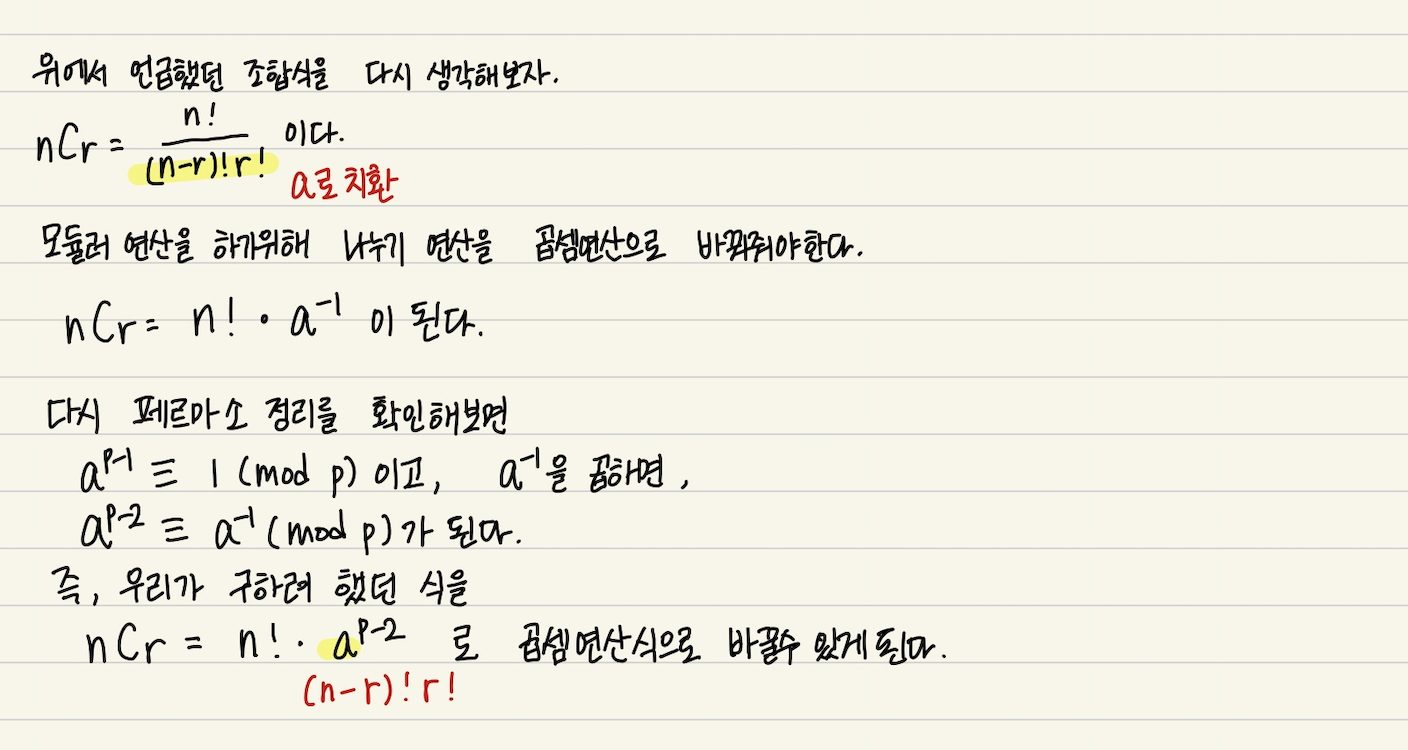 위에서 언급했던 조합식을 다시 생각해보자.
nCr = n! / (n-r)!r! 이다.
a로 치환
모듈러 연산을 하기위해 나누기 연산을 곱셈연산으로 바꿔줘야한다.
nCr = n! · a⁻¹ 이 된다.
다시 페르마소 정리를 확인해보면
aᵖ⁻¹ ≡ 1 (mod p) 이고, a⁻¹을 곱하면,
aᵖ⁻² ≡ a⁻¹ (mod p)가 된다.
즉, 우리가 구하려 했던 식을
nCr = n! · aᵖ⁻² 로 곱셈연산식으로 바꿀수 있게된다.
(n-r)!r!